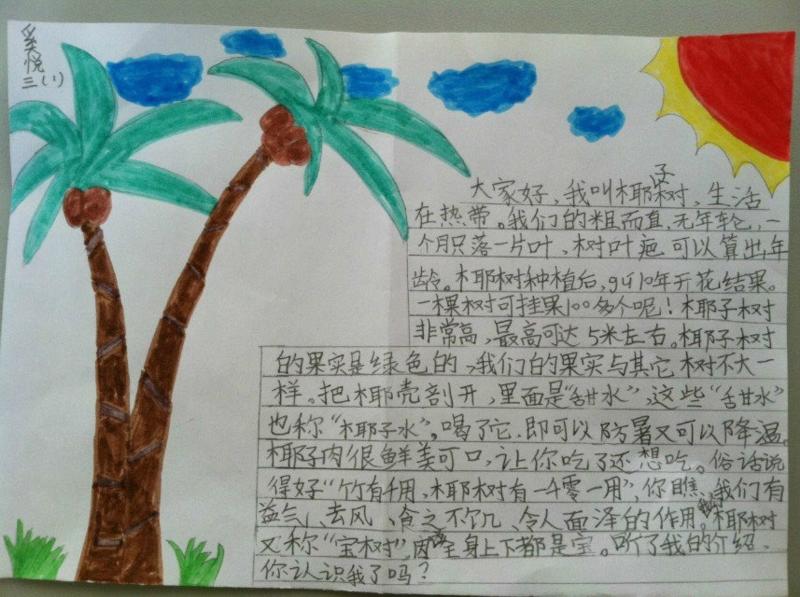 奚悦
三(1)
大家好,我叫椰子树,生活
在热带。我们的粗而直,无年轮,一
个月只落一片叶,树叶疤可以算出年
龄。椰树种植后,9到10年开花结果。
一棵树可挂果100多个呢!椰子树
非常高,最高可达5米左右。椰子树
的果实是绿色的,我们的果实与其它树不大一
样。把椰壳剖开,里面是“甜水”,这些“甜水”
也称“椰子水”,喝了它,即可以防暑又可以降温。
椰子肉很鲜美可口,让你吃了还想吃。俗话说
得好“竹有千用,椰树有一千零一用”,你瞧,我们有
益气、去风、食之不饥、令人面泽的作用。椰树
又称“宝树”,因全身上下都是宝。听了我的介绍,
你认识我了吗?